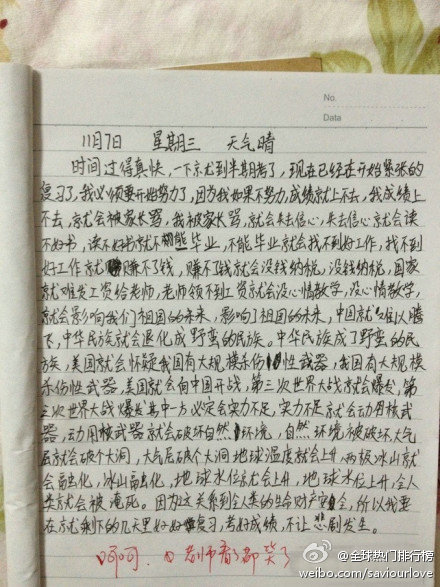 No.
Data
11月7日 星期三 天气晴
时间过得真快，一下就到半期考了，现在已经是开始紧张的
复习了，我必须要开始努力了，因为我如果不努力，成绩就上不去，我成绩上
不去，就会被家长骂，我被家长骂，就会失去信心，失去信心就会读
不好书，读不好书就不能毕业，不能毕业就会找不到好工作，找不到
好工作就赚不了钱，赚不了钱就会没钱纳税，没钱纳税，国家
就难发工资给老师，老师领不到工资就会没心情教学，没心情教学，
就会影响我们祖国的未来，影响了祖国的未来，中国就难以腾
飞，中华民族就会退化成野蛮的民族。中华民族成了野蛮的民
族，美国就会怀疑我国有大规模杀伤性武器，我国有大规模
杀伤性武器，美国就会向中国开战，第三次世界大战就会爆发，第
三次世界大战爆发其中一方必定会实力不足，实力不足就会动用核武
器，动用核武器就会破坏自然环境，自然环境被破坏，大气
层就会破个大洞，大气层破个大洞地球温度就会上升，两极冰山就
会融化，冰山融化，地球水位就会上升，地球水位上升，全人
类就会被淹死。因为这关系到全人类的生命财产安全，所以我要
在就剩下的几天里好好复习，考好成绩，不让悲剧发生。
呵呵，老师看了都笑了
@全球热门排行榜
weibo.com/saviourlove